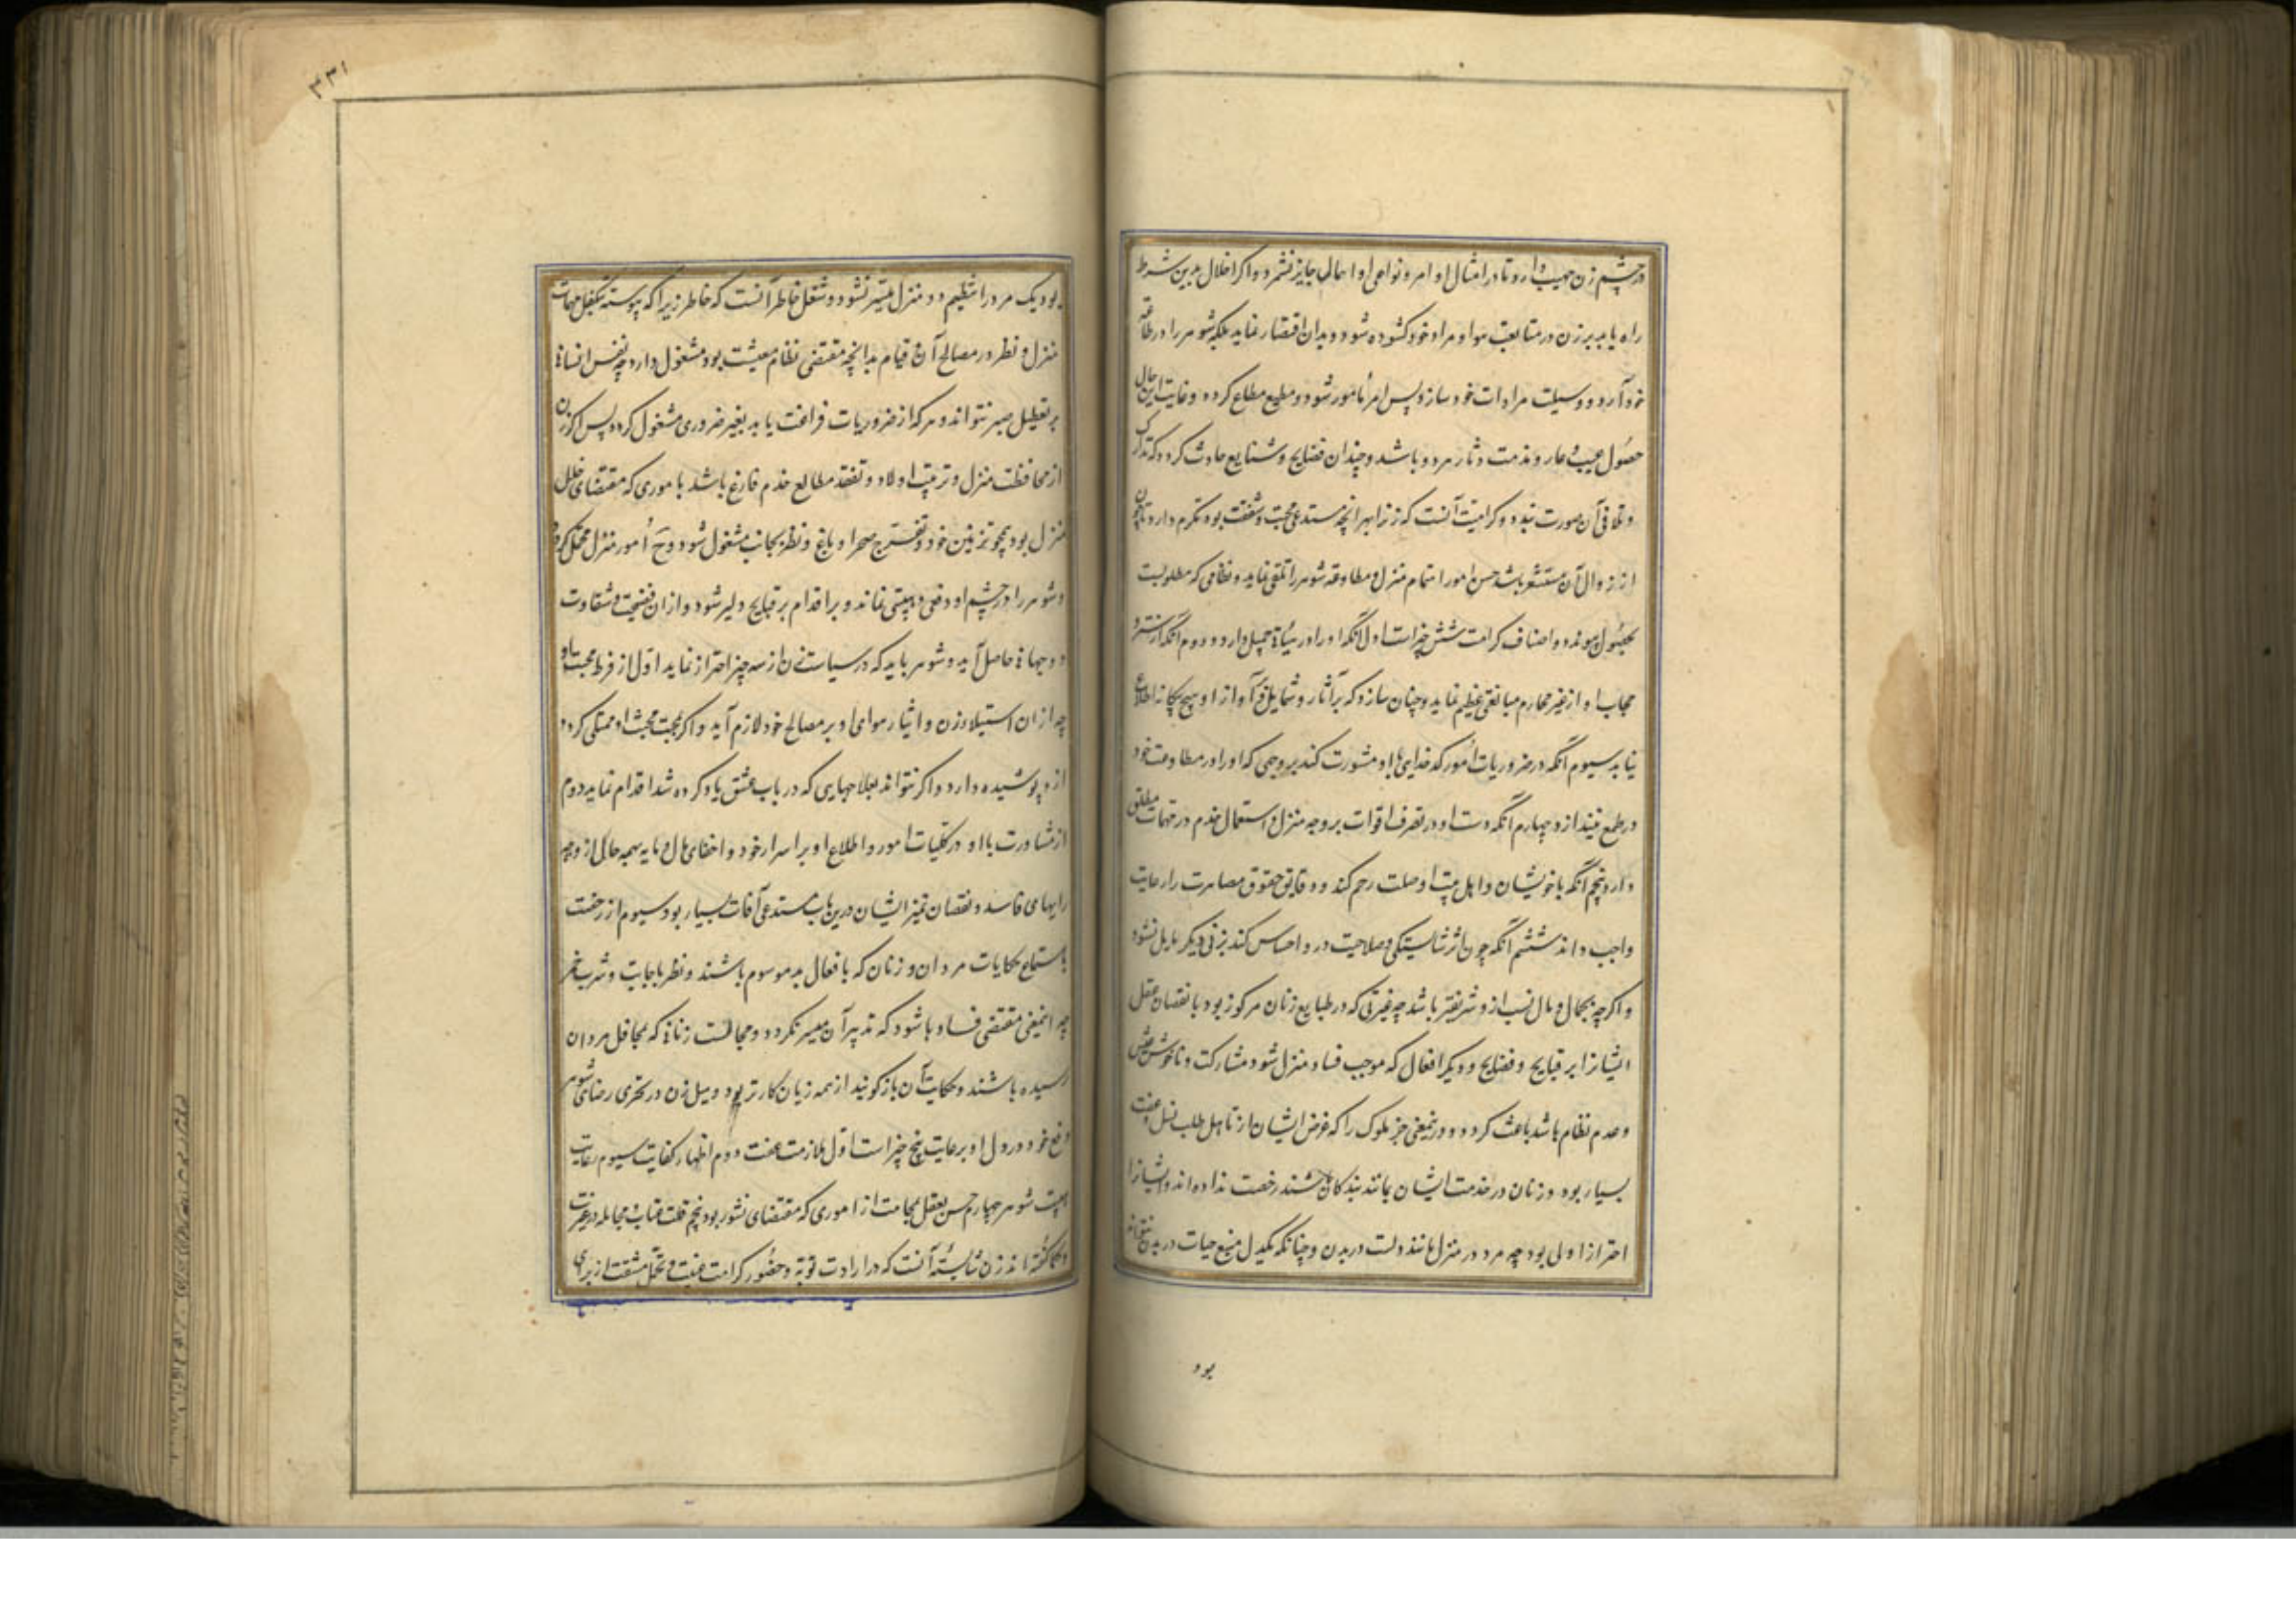 در چشم زن مهیب دارد تا در امتثال اوامر و نواهی او اهمال جایز نشمرد و اگر اخلال بدین شرط
راه یابد بر زن در متابعت هوا و مراد خود کشوده شود و بدان اقتصار نماید بلکه شوهر را در طاعت
خود آرد و وسیلت مرادات خود سازد پس امر مأمور شود و مطیع مطاع کردد و غایت این حال
حصول عیب و عار و مذمت و ثار هر دو باشد و چندان فضایح و شنایع حادث کردد که تدارک
و تلافی آن صورت نبندد و کرامت آنست که زن را بهر انچه مستدعی محبت و شفقت بود مکرم دارد تا چون
از زوال آن مستشعر باشد حسن امور اهتمام منزل و مطاوعه شوهر را تلقی نماید و نظامی که مطلوبست
بحصول پیوندد و اصناف کرامت شش چیز است اول آنکه او را در هیأة جمیل دارد و دوم آنکه در ستر و
حجاب او از غیر محارم مبالغتی عظیم نماید و چنان سازد که بر آثار و شمایل و آواز او هیچ بیکانه اطلاع
نیابد سیوم آنکه در ضروریات امور کدخدایی با او مشورت کند بر وجهی که او را در مطاوعت خود
در طمع نیندازد چهارم آنکه دست او در تصرف اقوات بر وجه منزل و استعمال خدم در مهمات مطلق
دارد پنجم آنکه با خویشان و اهل بیت او صلت رحم کند و دقایق حقوق مصاهرت را رعایت
واجب داند ششم آنکه چون اثر شایستکی و صلاحیت در و احساس کند بزنی دیکر مایل نشود
و اکرچه بجمال و مال و نسب از و شریفتر باشد چه غیرتی که در طبایع زنان مرکوز بود با نقصان عقل
ایشانرا بر قبایح و فضایح و دیکر افعال که موجب فساد منزل شود و مشارکت و ناخوشی عیش
و عدم نظام باشد باعث کردد و درینمعنی جز ملوک را که غرض ایشان از تأهل طلب نسل و عقب
بسیار بود و زنان در خدمت ایشان بمانند بندکان باشند رخصت نداده اند و ایشانرا
احتراز اولی بود چه مرد در منزل مانند دلست در بدن و چنانکه یکدل منبع حیات دو بدن نتواند
بود
بود یک مرد را تنظیم دو منزل میسر نشود و شغل خاطر آنست که خاطر زن را که پیوسته بتکفل مهمات
منزل و نظر در مصالح آن و قیام بدانچه مقتضی نظام معیشت بود مشغول دارد چه نفس انسانی
بر تعطیل صبر نتواند و هر که از ضروریات فراغت یابد بغیر ضروری مشغول کردد پس اکر زن
از محافظت منزل و تربیت اولاد و تفقد مطالع خدم فارغ باشد با موری که مقتضای خلل
منزل بود همچو تزیین خود و تفرج صحرا و باغ و نظر بجانب مشغول شود و حَ امور منزل مختل کردد
و شوهر را در چشم او وقعی و هیبتی نماند و بر اقدام بر قبایح دلیر شود و ازان فضیحت و شقاوت
دو جهانی حاصل آید و شوهر باید که در سیاست زن از سه چیز احتراز نماید اول از فرط محبت با او
چه ازان استیلا زن و ایثار هوای او بر مصالح خود لازم آید و اکر بمحنت محبت او ممتلی کردد
ازو پوشیده دارد و اکر نتواند بعلاجهایی که در باب عشق یاد کرده شد اقدام نماید دوم
از مشاورت با او در کلیات امور و اطلاع او بر اسرار خود و اخفای مال و مایه بهمه حال ازو چه
رایهای فاسد و نقصان تمیز ایشان درین باب مستدعی آفات بسیار بود سیوم از رخصت
باستماع حکایات مردان و زنان که با فعال بد موسوم باشند و نظر باجانب و شرب خمر
چه اینمعنی مقتضی فساد باشود که تدبیر آن میسر نکردد و مجالست زنانی که بمحافل مردان
رسیده باشند و حکایت آن باز کویند از همه زیان کارتر بود و سبیل زن در تحری رضای شوهر
وقع خود در دل او برعایت پنج چیز است اول ملازمت عفت دوم اظهار کفایت سیوم رعایت
هیبت شوهر چهارم حسن تعقل و مجانبت از اموری که مقتضای نشوز بود پنجم قلت عتاب و مجامله در غیرت
و حکما کفته اند زن شایسته آنست که در ارادت توبه و حضور کرامت غیبت و تحمل مشقت از برای